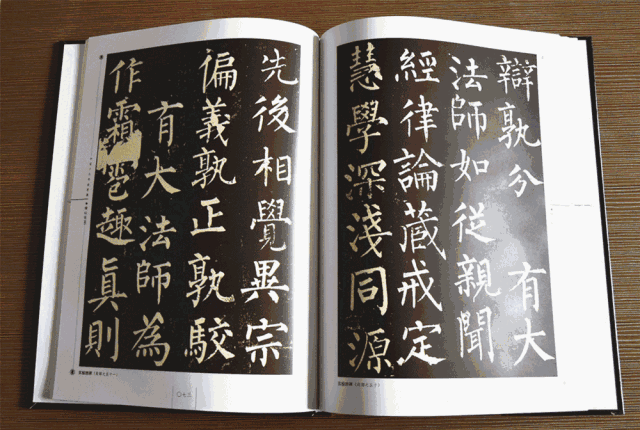 辯孰分 有大
法師如從親聞
經律論藏戒定
慧學深淺同源
先後相覺異宗
偏義孰正孰駮
有大法師為
作霜雹趣眞則